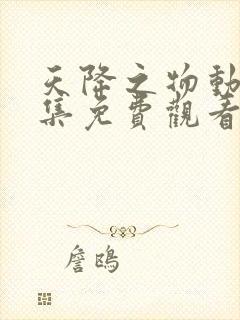 天降之物動
集免費觀看
詹鴎